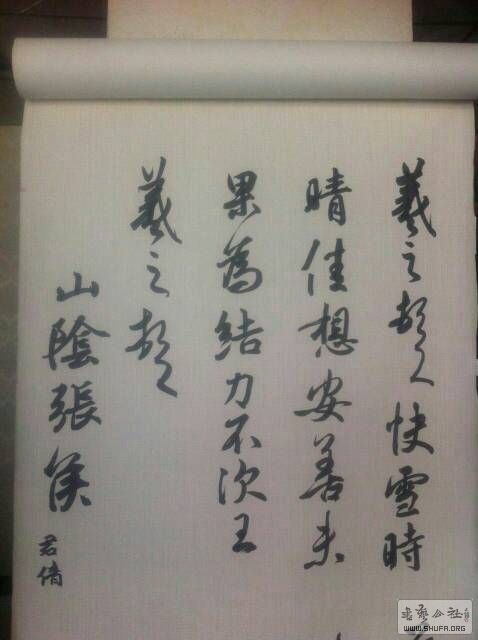 羲之頓首快雪時
晴佳想安善未
果為結力不次王
羲之頓首
山陰張侯
君倩
书艺公社
WWW.SHUFA.ORG